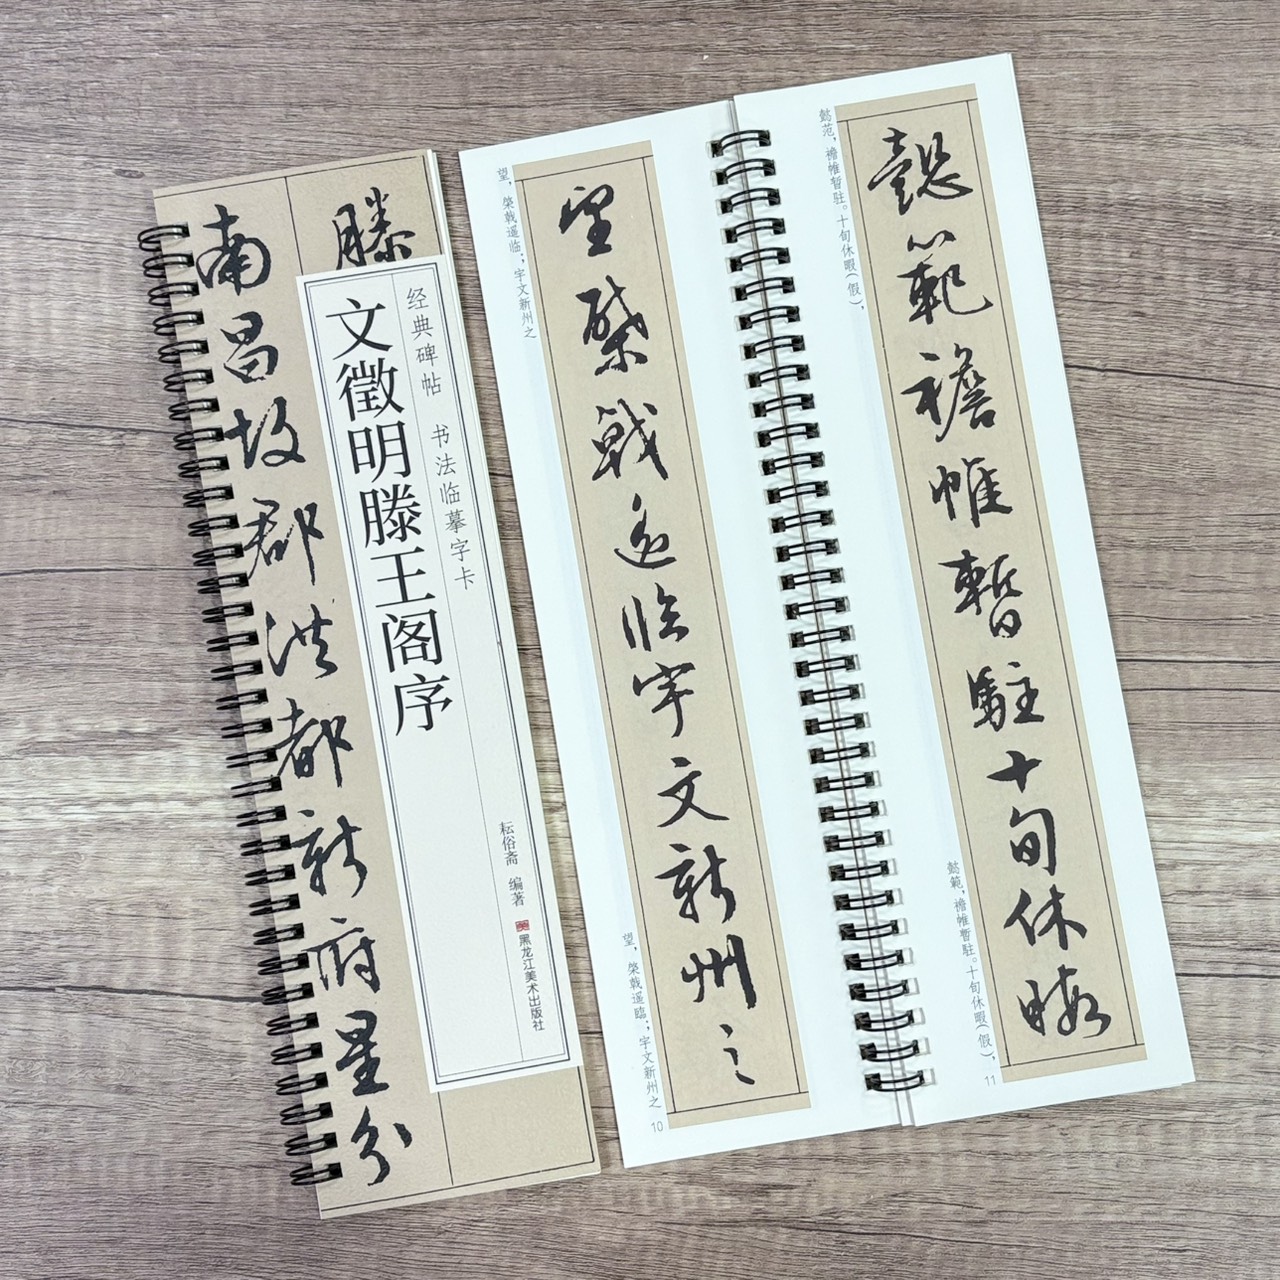 滕
南昌故郡洪都新府星分
经典碑帖 书法临摹字卡
文徵明滕王阁序
耘俗斋 编著
黑龙江美术出版社
望，棨戟遥临；宇文新州之
望棨戟遥临宇文新州之
望，棨戟遥臨；宇文新州之
10
懿范，襜帷暂驻。十旬休暇(假)，
懿範襜帷暫駐十旬休暇
懿範，襜帷暫駐。十旬休暇(假)，
11